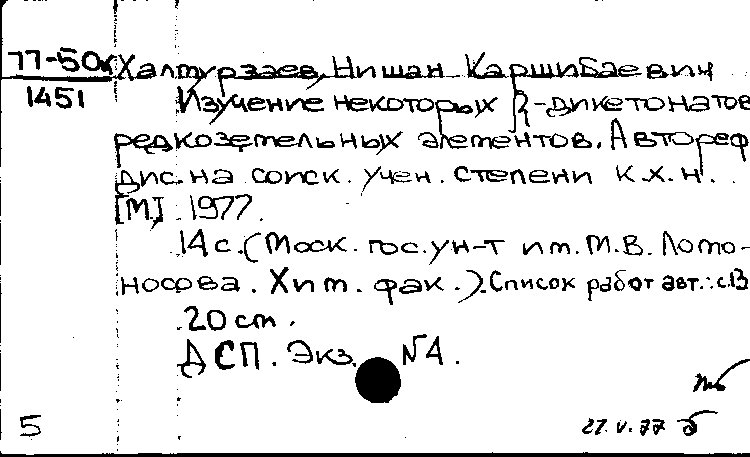 77-50к Халтурзаев, Нишан Каршибаевич
1451 Изучение некоторых β-дикетонатов
редкоземельных элементов. Автореф
дис. на соиск. учен. степени к.х.н.
[М] 1977.
14 с. (Моск. гос. ун-т им. М.В. Ломо-
носова. Хим. фак.). Список работ авт.: с. 13
20 см.
ДСП. Экз. №4.
5 27.V.77